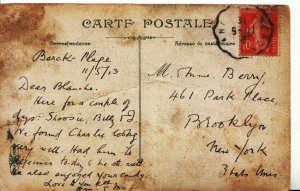 CARTE POSTALE
Correspondance
Adresse du destinataire
Berck-Plage
11/5/13
Dear Blanche.
Here for a couple of
days. Billy & I
found Charlie looking
very well. Had him to
dejeuner to-day & he ate well
he also enjoyed your candy.
Love to you all
M. Anne Berry
461 Park Place,
Brooklyn
New York
Etats Unis
10